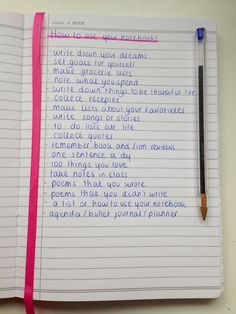 make a note
How to use your notebooks
· write down your dreams
· set goals for yourself
· make grocerie lists
· note what you spend
· write down things to be thankful for
· collect recepies
· make lists about your favorietes
· write songs or stories
· to do lists are life
· collect quotes
· remember book and film reviews
· one sentence a dy
· 100 things you love
· take notes in class
· poems that you wrote
· poems that you didn't write
· a list or how to use your notebook
· agenda/bullet journal/planner